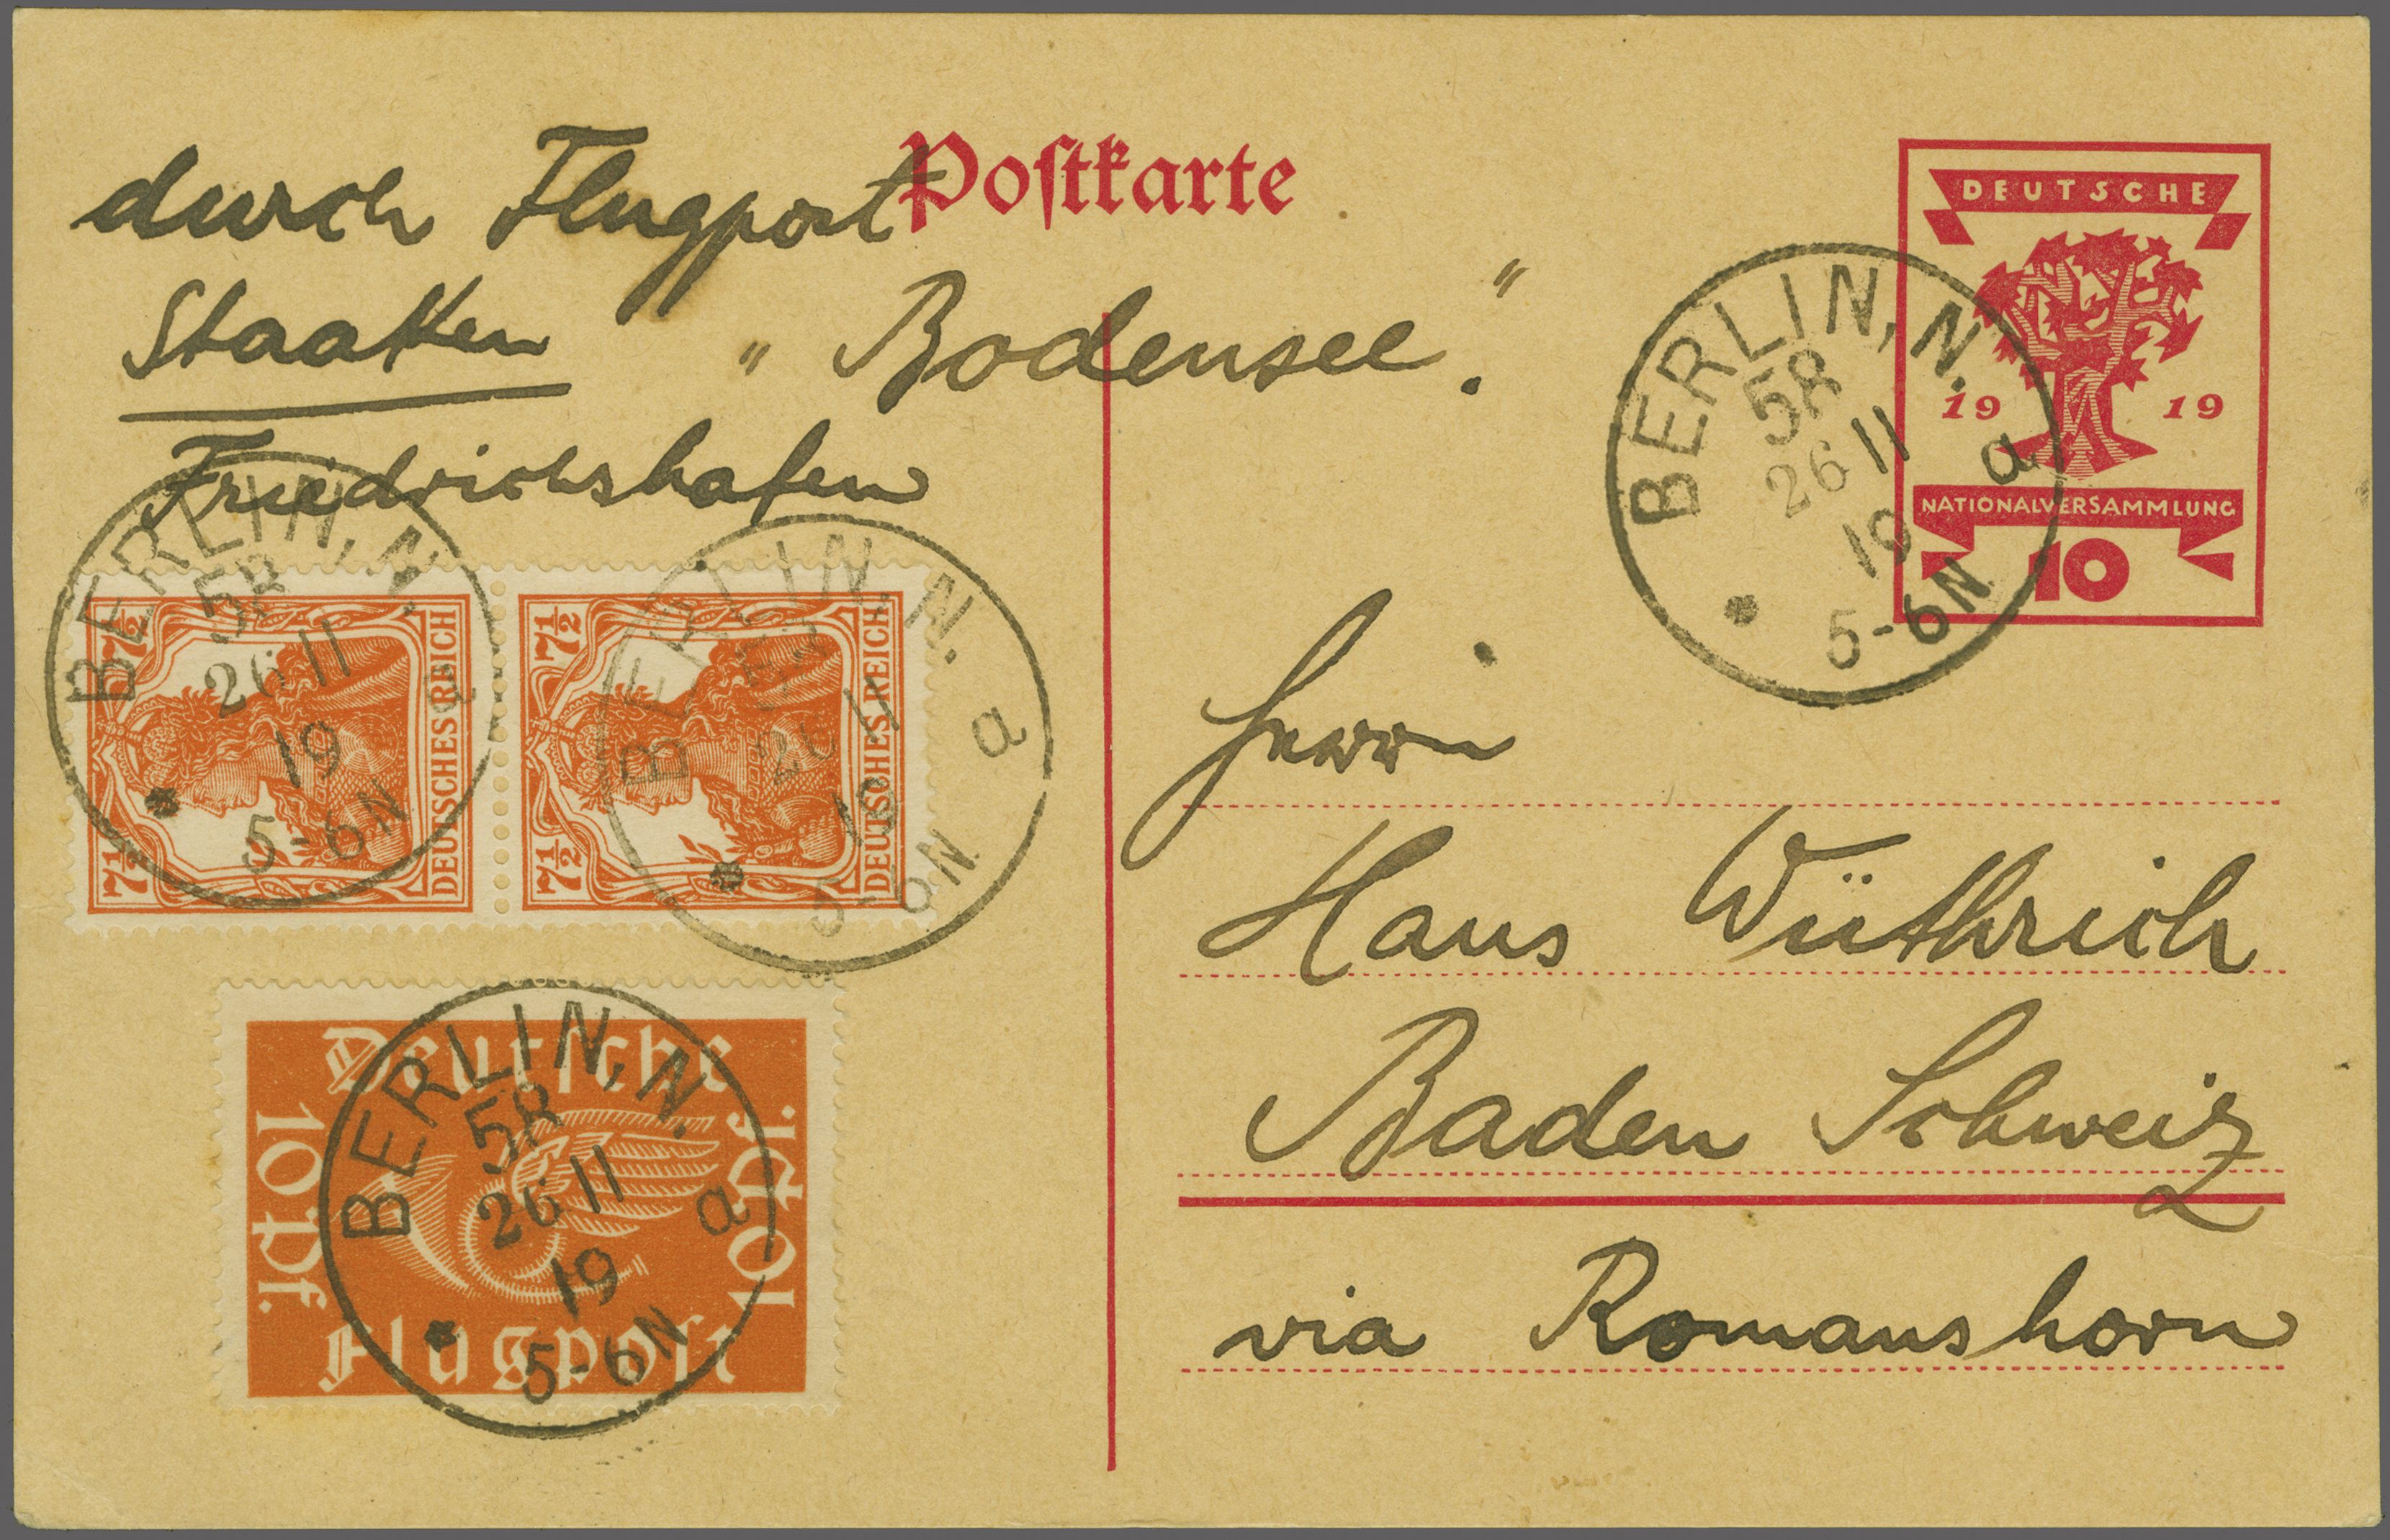 durch Flugpost
Postkarte
Staaken
„Bodensee."
Friedrichshafen
DEUTSCHE
19 19
NATIONALVERSAMMLUNG
10
BERLIN, N.
58
26 11
19
5-6N
a
7½ 7½
DEUTSCHES REICH
BERLIN, N.
58
26 11
19
5-6N
a
7½ 7½
DEUTSCHES REICH
BERLIN, N.
58
26 11
19
5-6N
a
Deutsche
10 Pf. 10 Pf.
Flugpost
BERLIN, N.
58
26 11
19
5-6N
a
Herrn
Hans Wüthrich
Baden Schweiz
via Romanshorn